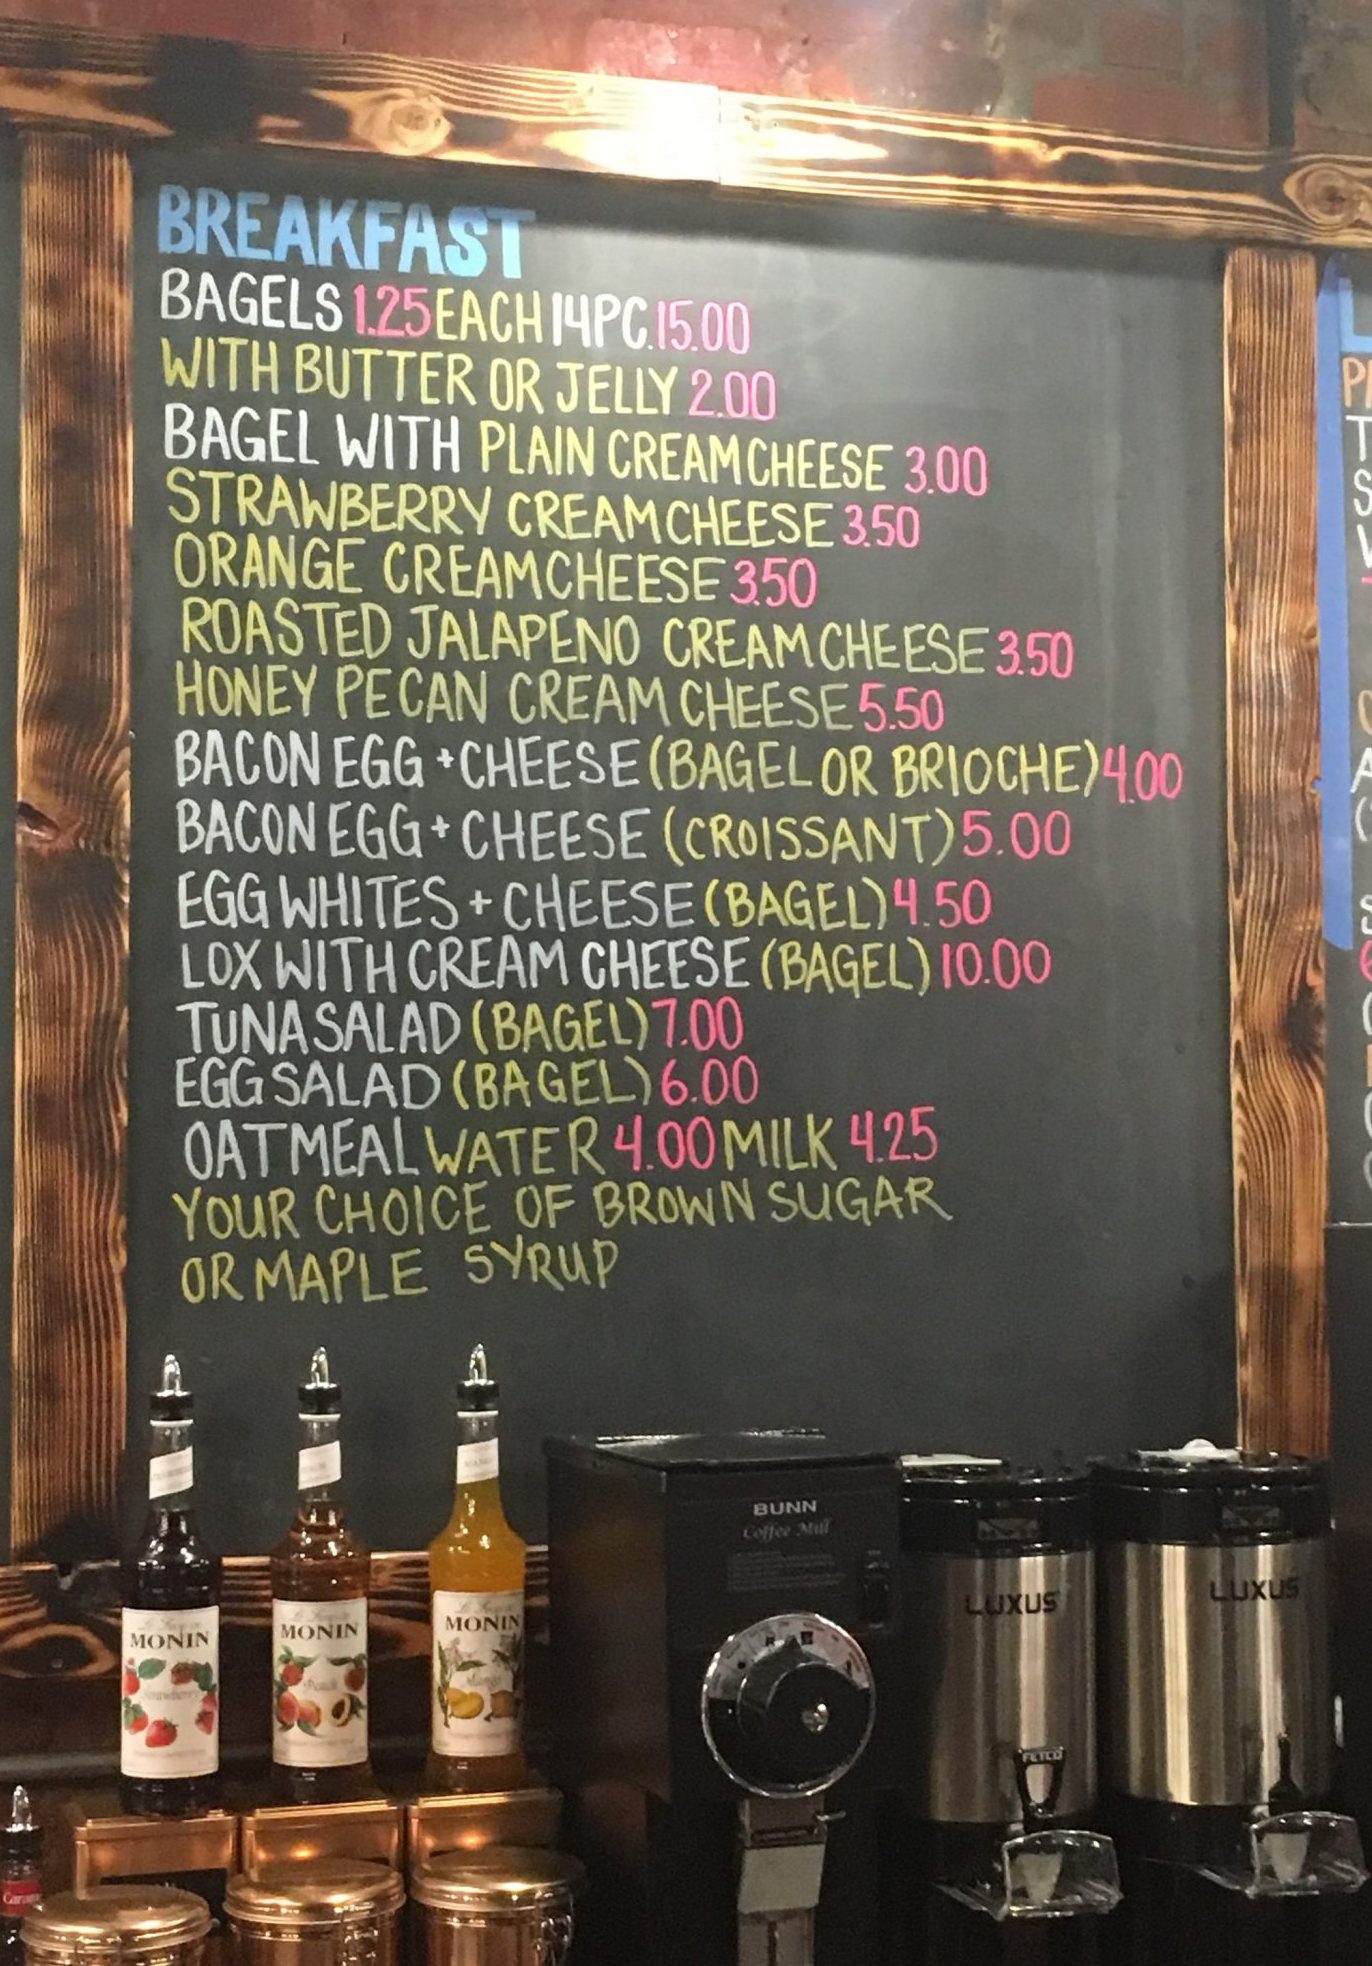 BREAKFAST
BAGELS 1.25 EACH 14PC. 15.00
WITH BUTTER OR JELLY 2.00
BAGEL WITH PLAIN CREAM CHEESE 3.00
STRAWBERRY CREAM CHEESE 3.50
ORANGE CREAM CHEESE 3.50
ROASTED JALAPENO CREAM CHEESE 3.50
HONEY PECAN CREAM CHEESE 5.50
BACON EGG + CHEESE (BAGEL OR BRIOCHE) 4.00
BACON EGG + CHEESE (CROISSANT) 5.00
EGG WHITES + CHEESE (BAGEL) 4.50
LOX WITH CREAM CHEESE (BAGEL) 10.00
TUNA SALAD (BAGEL) 7.00
EGG SALAD (BAGEL) 6.00
OATMEAL WATER 4.00 MILK 4.25
YOUR CHOICE OF BROWN SUGAR
OR MAPLE SYRUP
BUNN
Coffee Mill
LUXUS
LUXUS
MONIN
Strawberry
MONIN
Peach
MONIN
Mango
FETCO